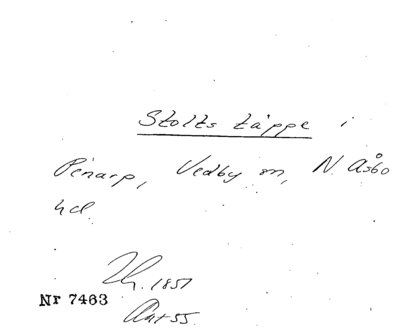 Stolts täppe i
Pénarp, Vedby sn, N. Åsbo
hd.
1851
Nr 7463
Akt 55